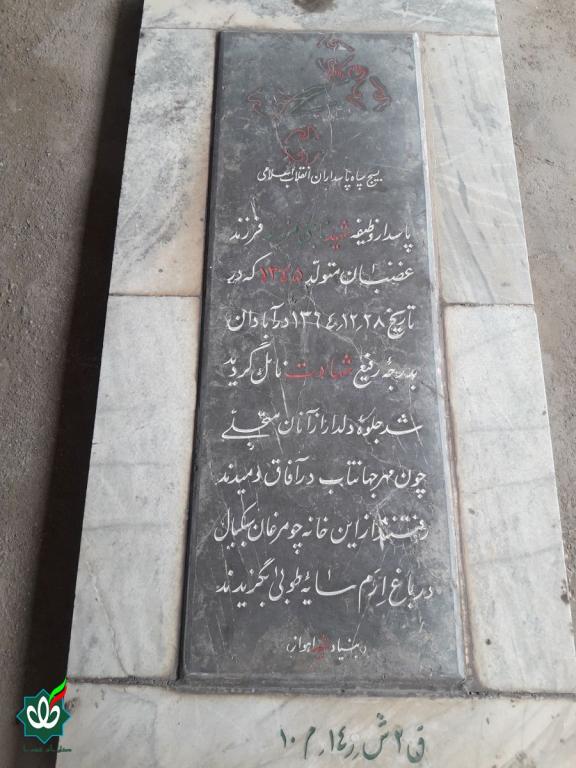 بسیج سپاه پاسداران انقلاب اسلامی
پاسدار وظیفه شهید فرزند
غضبان متولد ۱۳۴۵ که در
تاریخ ۱۳۶۴٫۱۲٫۲۸ در آبادان
بدرجهٔ رفیع شهادت نائل گردید
شد جلوهٔ دلدار از آنان متجلی
چون مهر جهانتاب در آفاق دمیدند
رفتند از این خانه چو مرغان سبکبال
در باغ ارم سایهٔ طوبی بگزیدند
(بنیاد شهید اهواز)
ق ۲ ش ر ۱۴ م ۱۰